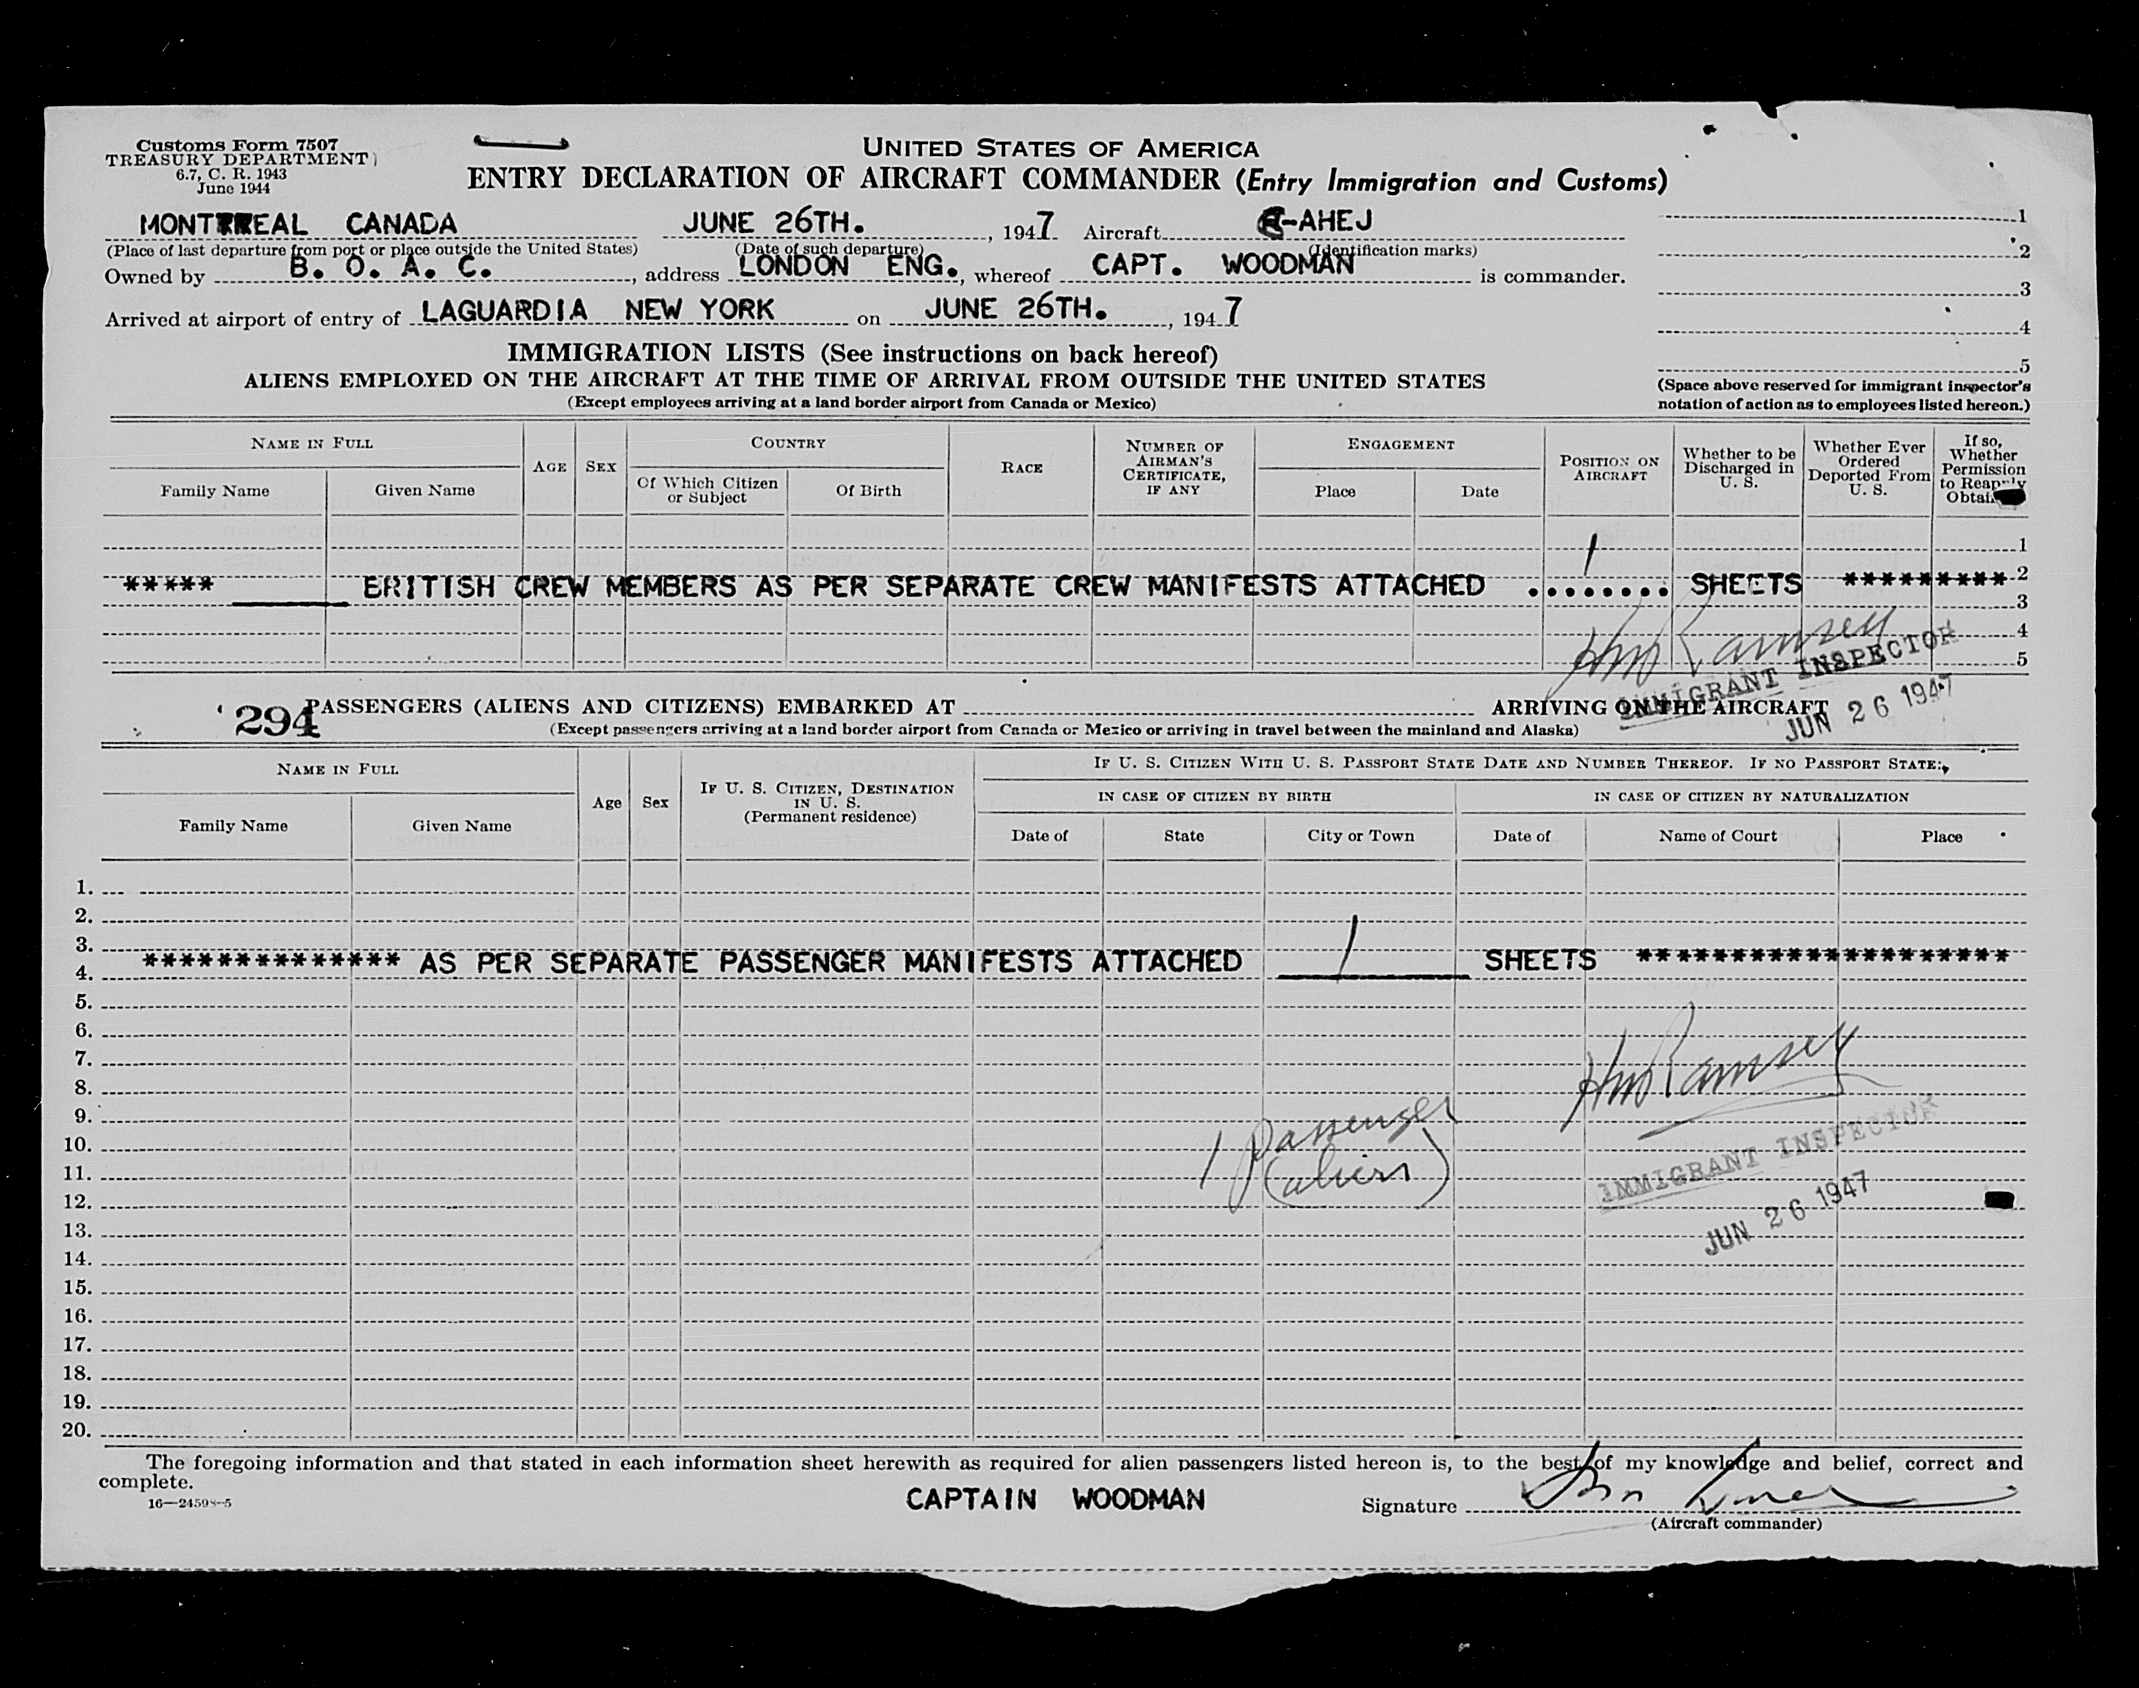 Customs Form 7507
TREASURY DEPARTMENT
6.7, C. R. 1943
June 1944
UNITED STATES OF AMERICA
ENTRY DECLARATION OF AIRCRAFT COMMANDER (Entry Immigration and Customs)
MONTREAL CANADA JUNE 26TH. , 1947 Aircraft G-AHEJ 1
(Place of last departure from port or place outside the United States) (Date of such departure) (Identification marks) 2
Owned by B. O. A. C. , address LONDON ENG. , whereof CAPT. WOODMAN is commander.
3
Arrived at airport of entry of LAGUARDIA NEW YORK on JUNE 26TH. , 1947
4
IMMIGRATION LISTS (See instructions on back hereof)
5
ALIENS EMPLOYED ON THE AIRCRAFT AT THE TIME OF ARRIVAL FROM OUTSIDE THE UNITED STATES
(Except employees arriving at a land border airport from Canada or Mexico)
(Space above reserved for immigrant inspector's
notation of action as to employees listed hereon.)
NAME IN FULL
Family Name Given Name
AGE SEX
COUNTRY
Of Which Citizen or Subject Of Birth
RACE
NUMBER OF AIRMAN'S CERTIFICATE, IF ANY
ENGAGEMENT
Place Date
POSITION ON AIRCRAFT
Whether to be Discharged in U. S.
Whether Ever Ordered Deported From U. S.
If so, Whether Permission to Reapply
1
2
***** BRITISH CREW MEMBERS AS PER SEPARATE CREW MANIFESTS ATTACHED ...1..... SHEETS *********
3
4
5
Ramsey
IMMIGRANT INSPECTOR
JUN 26 1947
294
PASSENGERS (ALIENS AND CITIZENS) EMBARKED AT ARRIVING ON THE AIRCRAFT
(Except passengers arriving at a land border airport from Canada or Mexico or arriving in travel between the mainland and Alaska)
NAME IN FULL
Family Name Given Name
Age Sex
IF U. S. CITIZEN, DESTINATION IN U. S.
(Permanent residence)
IF U. S. CITIZEN WITH U. S. PASSPORT STATE DATE AND NUMBER THEREOF. IF NO PASSPORT STATE:
IN CASE OF CITIZEN BY BIRTH IN CASE OF CITIZEN BY NATURALIZATION
Date of State City or Town Date of Name of Court Place
1.
2.
3.
************** AS PER SEPARATE PASSENGER MANIFESTS ATTACHED 1 SHEETS ********************
4.
5.
6.
7.
Ramsey
8.
9.
1 passenger
10.
IMMIGRANT INSPECTOR
11.
(alien)
12.
JUN 26 1947
13.
14.
15.
16.
17.
18.
19.
20.
The foregoing information and that stated in each information sheet herewith as required for alien passengers listed hereon is, to the best of my knowledge and belief, correct and
complete.
16—24598-5
CAPTAIN WOODMAN Signature
(Aircraft commander)